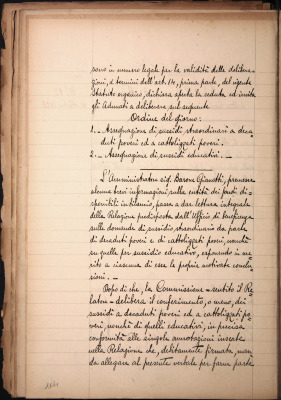 sono in numero legale per la validità delle delibera-
zioni, a termini dell'art. 14, prima parte, del vigente
Statuto organico, dichiara aperta la seduta ed invita
gli Adunati a deliberare sul seguente
Ordine del giorno:
1. - Assegnazione di sussidi straordinari a deca-
duti poveri ed a cattolizzati poveri.
2. - Assegnazione di sussidi educativi. -
L'Amministratore sig. Barone Gianotti, premesse
alcune brevi informazioni sulla entità dei fondi di-
sponibili in bilancio, passa a dar lettura integrale
della Relazione predisposta dall'Ufficio di beneficenza
sulle domande di sussidio straordinario da parte
di decaduti poveri e di cattolizzati poveri, nonchè
su quelle per sussidio educativo, esponendo in me-
rito a ciascuna di esse le proprie motivate conclu-
sioni. -
Dopo di che, la Commissione - sentito il Re-
latore - delibera il conferimento, o meno, dei
sussidi a decaduti poveri ed a cattolizzati po-
veri, nonchè di quelli educativi, in precisa
conformità alle singole annotazioni inserte
nella Relazione che, debitamente firmata, man-
da allegare al presente verbale per farne parte